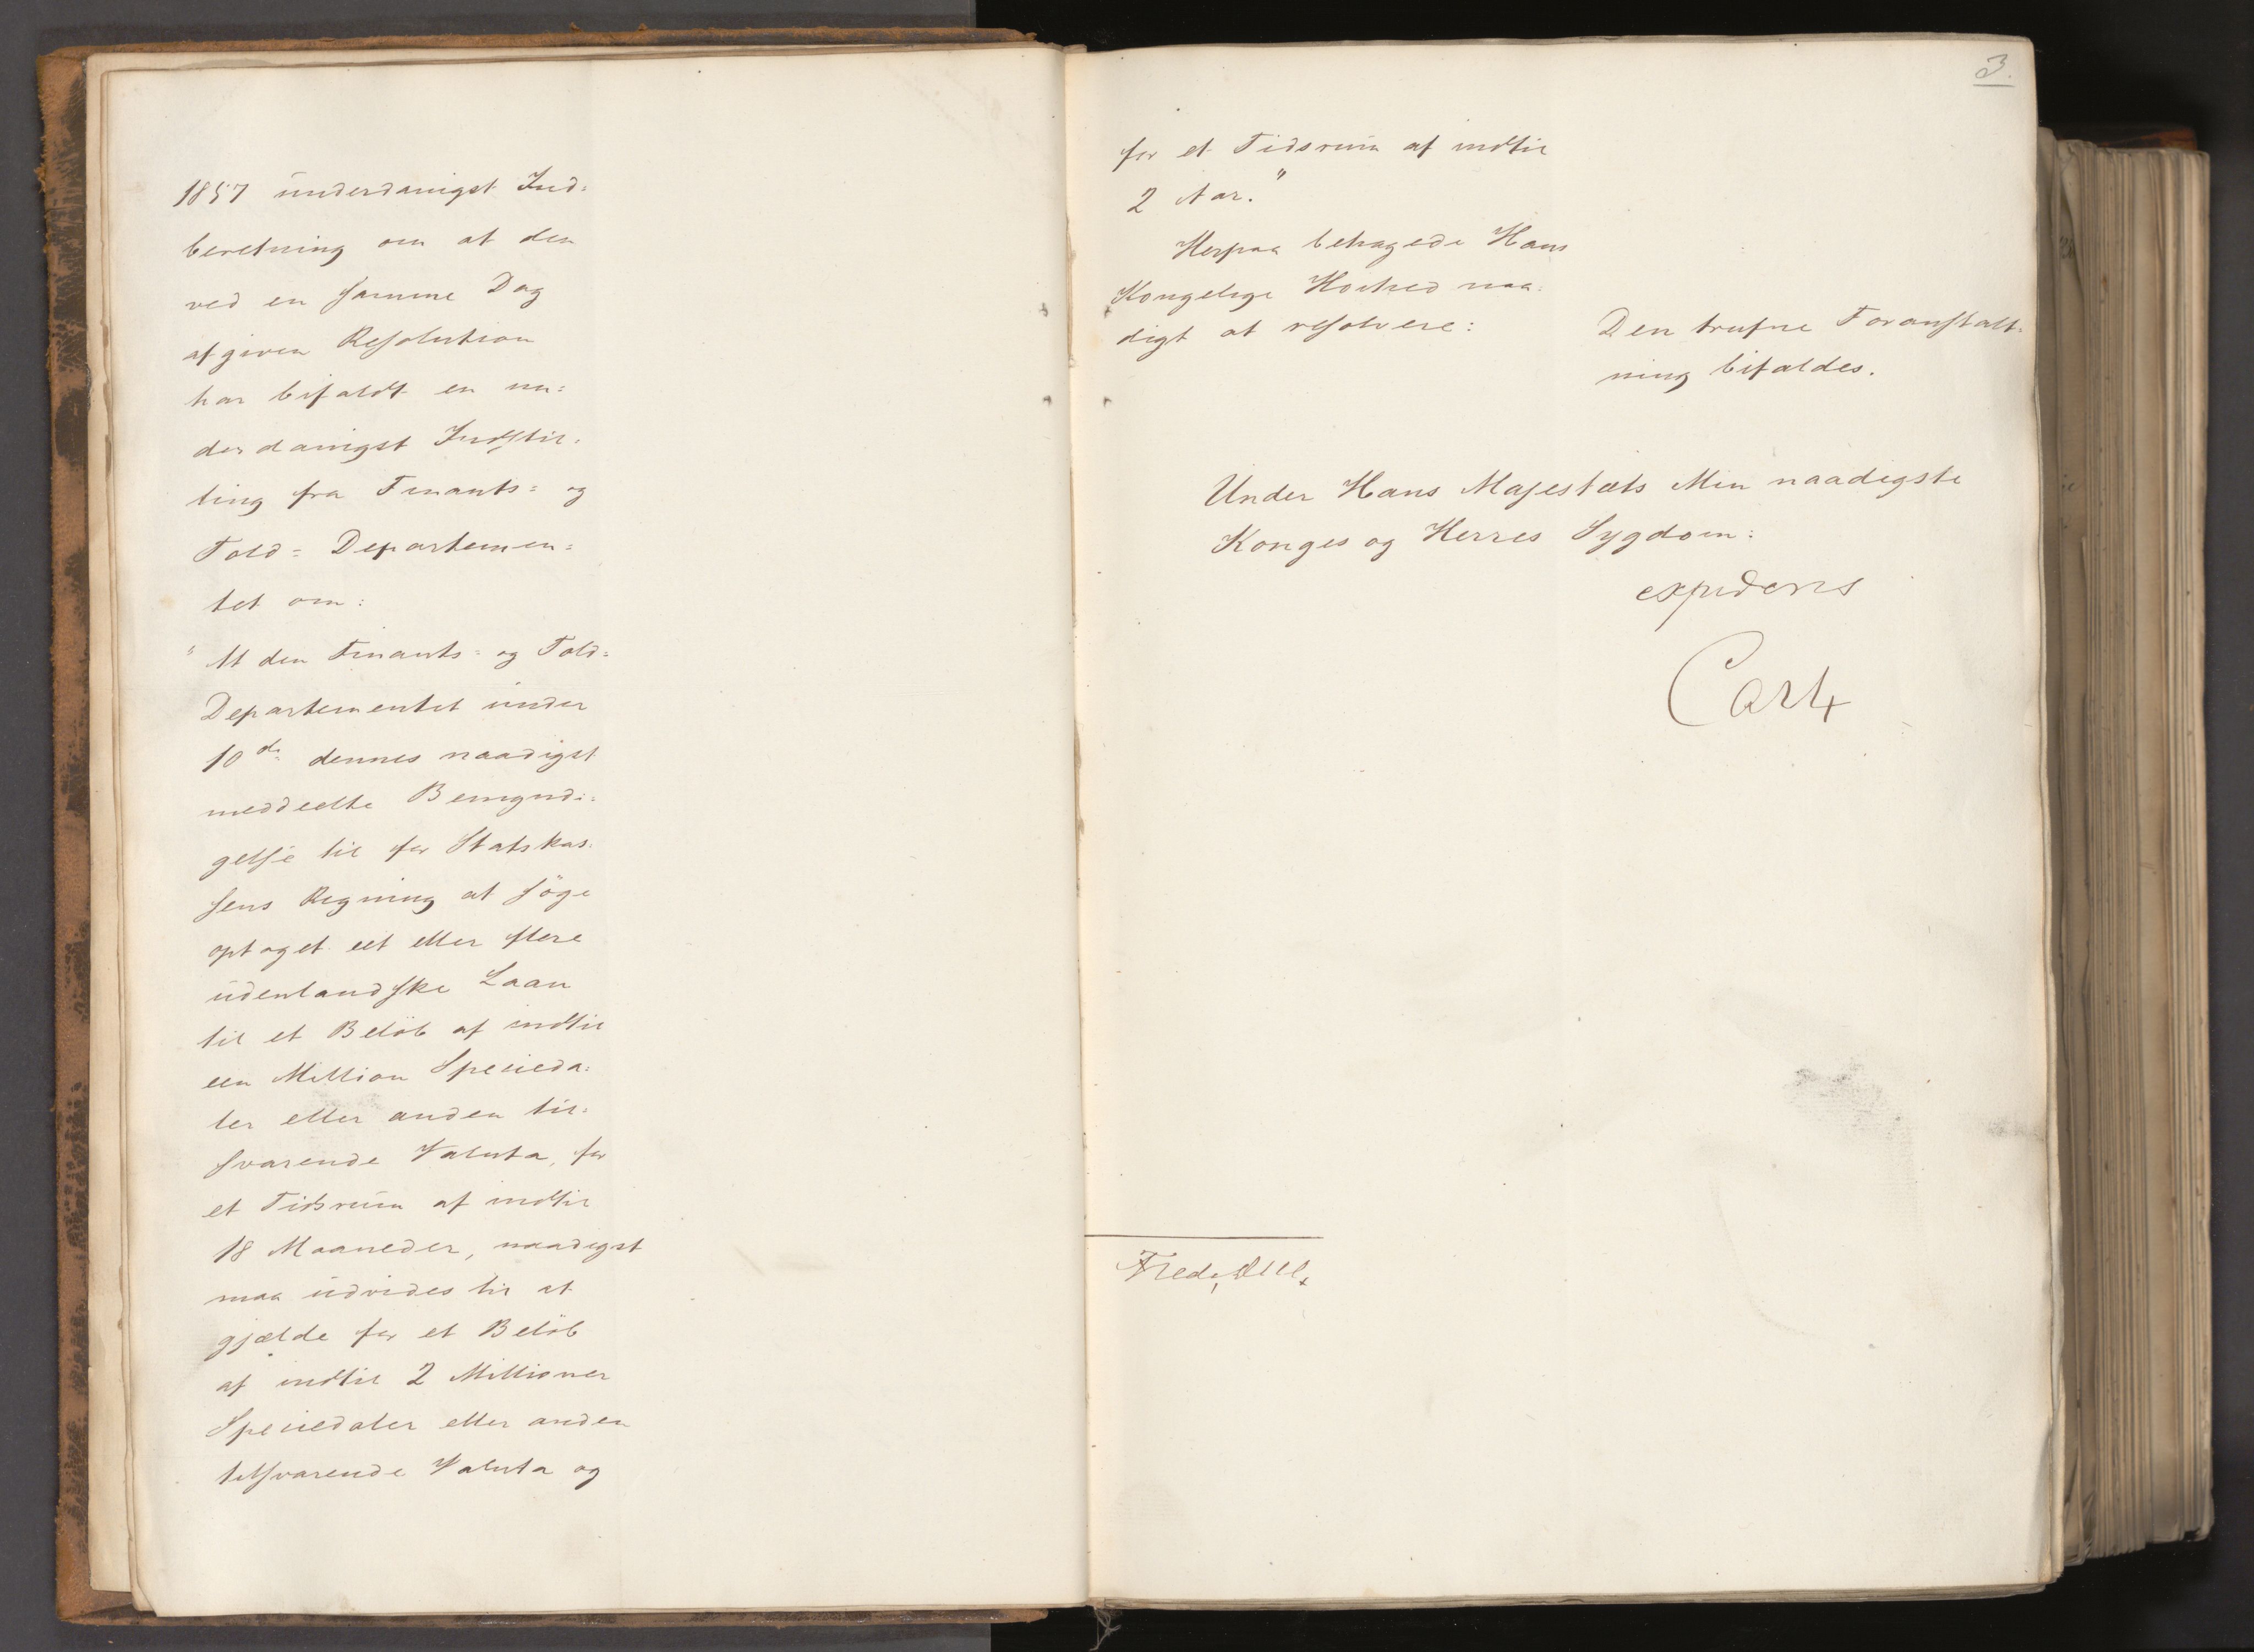 1857 underdanigst Ind=
beretning om at den
ved en samme Dag
afgiven Resolution
har bifaldt en un=
derdanigst Indstil=
ling fra Finants= og
Told=Departemen=
tet om:
"At den Finants= og Told=
Departementet under
10de dennes naadigst
meddeelte Bemyndi=
gelse til for Statskas=
sens Regning at söge
optaget eet eller flere
udenlandske Laan
til et Belöb af indtil
een Million Specieda=
ler eller anden til=
svarende Valuta, for
et Tidsrum af indtil
18 Maaneder, naadigst
maa udvides til at
gjælde for et Belöb
af indtil 2 Millioner
Speciedaler eller anden
tilsvarende Valuta og
3.
for et Tidsrum af indtil
2 Aar."
Herpaa behagede Hans
Kongelige Höihed naa=
digt at resolvere:
Den trufne Foranstalt=
ning bifaldes.
Under Hans Majestæts Min naadigste
Konges og Herres Sygdom:
Carl